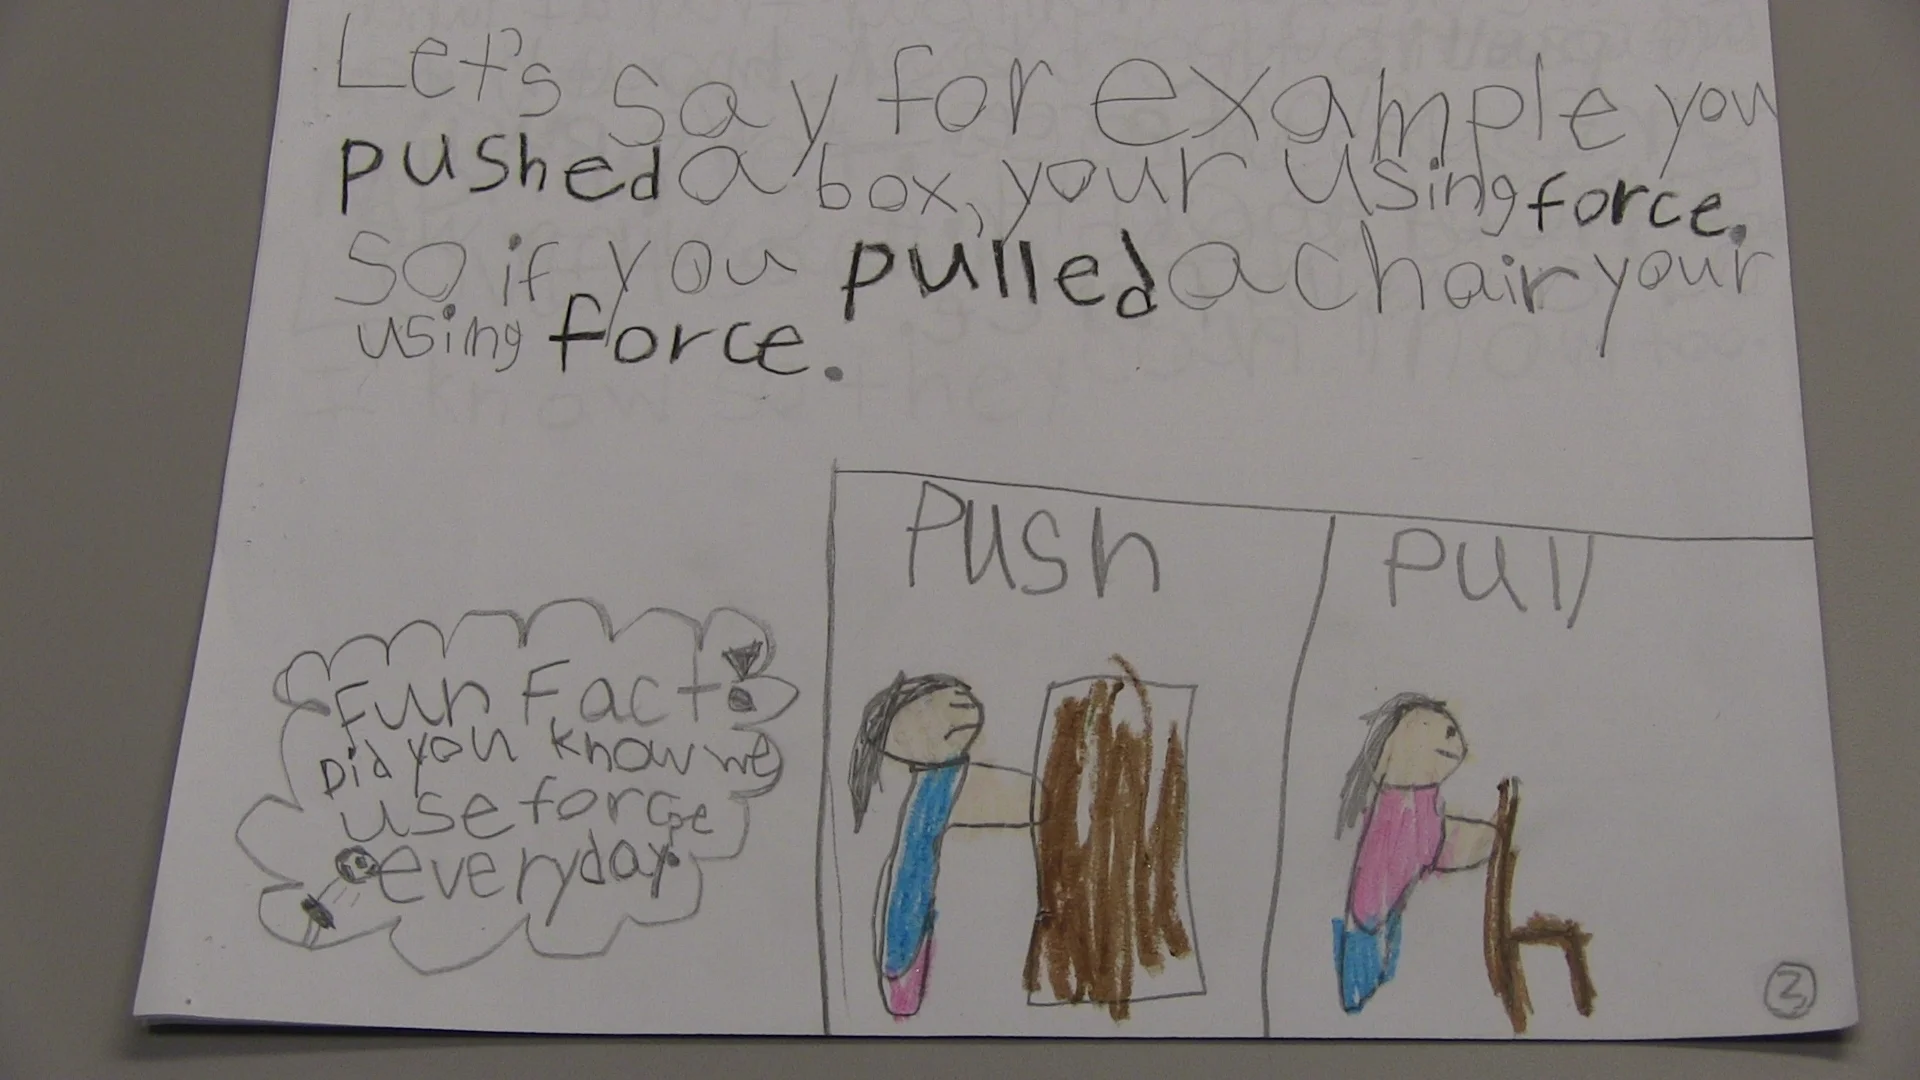 Let's say for example you
pushed a box, your using force.
So if you pulled a chair your
using force.
Push
Pull
Fun Fact!
Did you know we
use force
everyday.
3